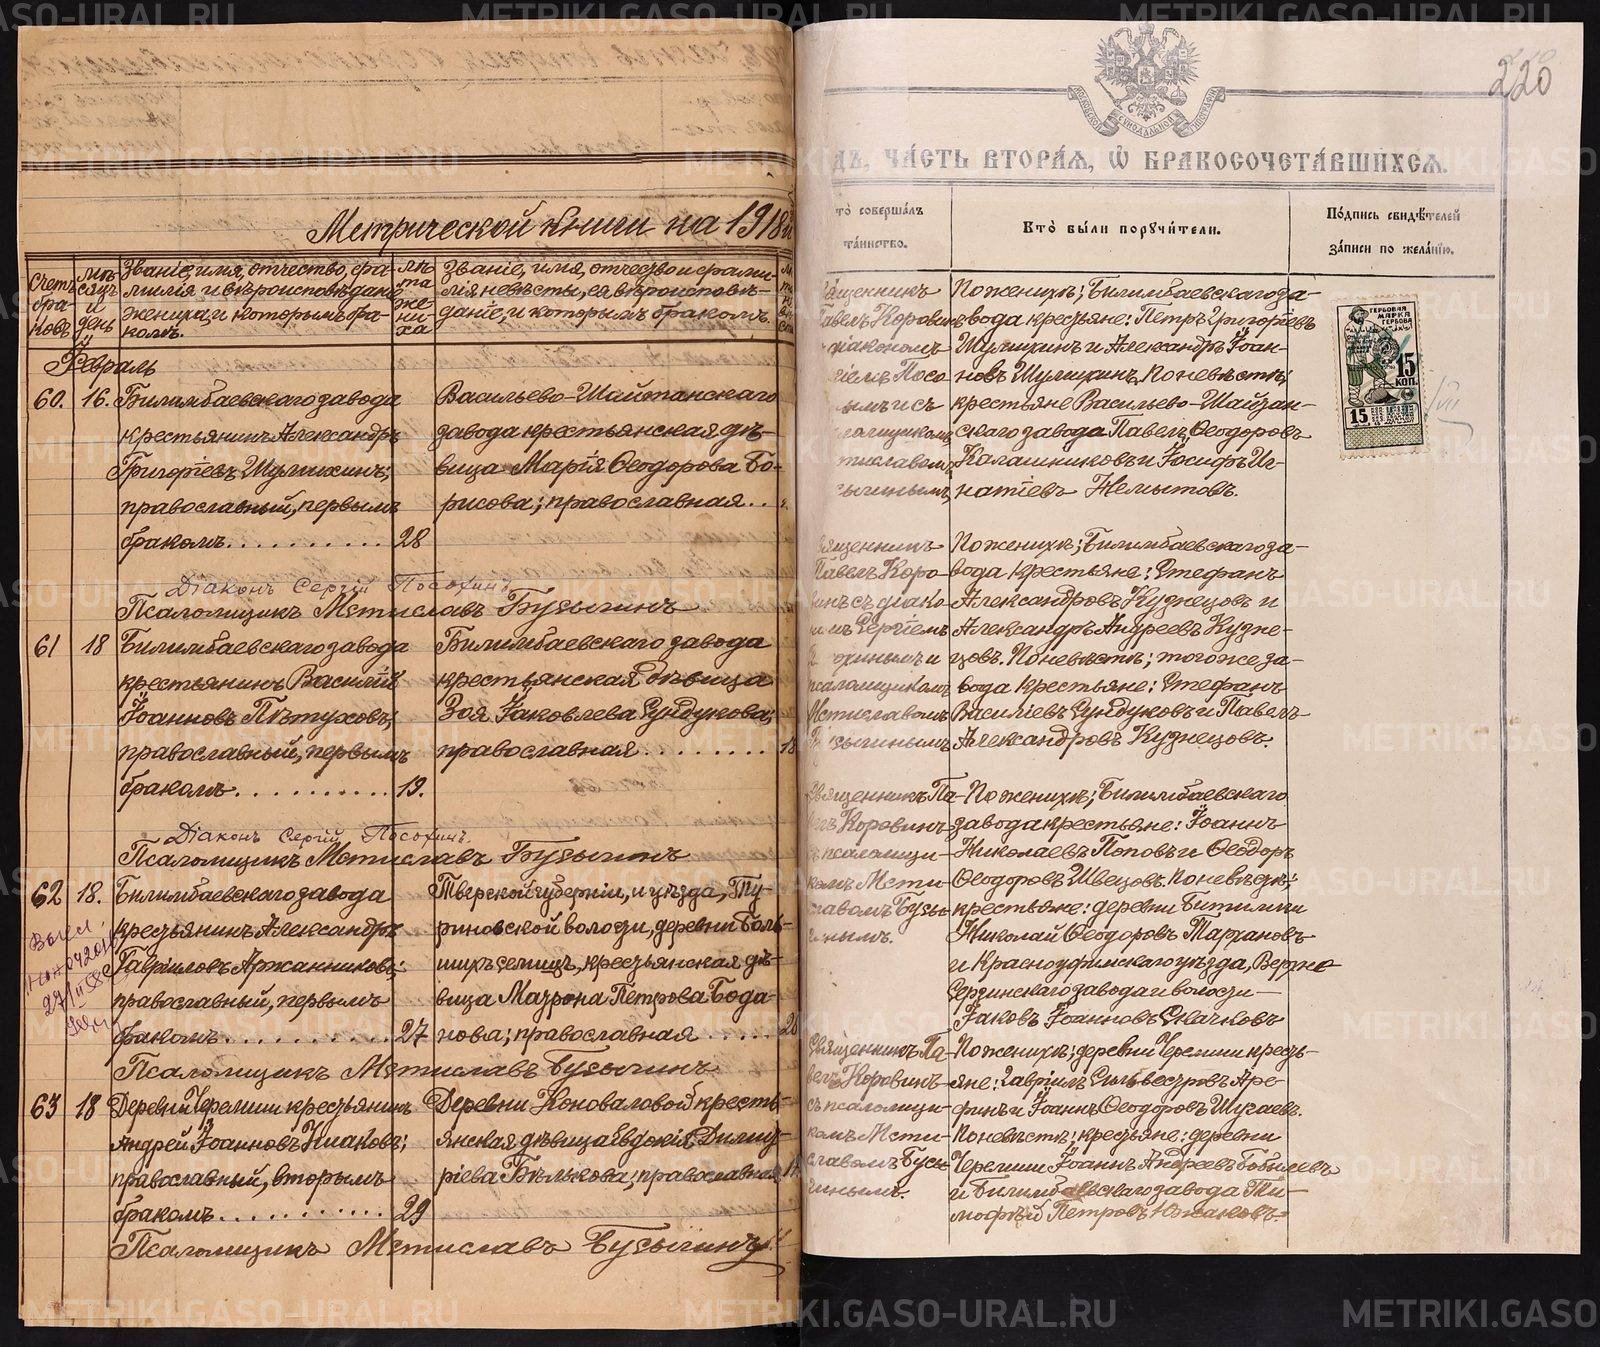 Метрической книги на 1918
Счетъ бра- ковъ.
мѣсяцъ и день
Званіе, имя, отчество, фа-
милія и вѣроисповѣданіе
жениха, и которымъ бра-
комъ.
лѣта жениха
Званіе, имя, отчество и фами-
лія невѣсты, ея вѣроисповѣ-
даніе, и которымъ бракомъ.
Февраль
60. 16. Билимбаевскаго завода
крестьянинъ Александръ
Григоріевъ Шулихинъ;
православный, первымъ
бракомъ........... 28
Васильево-Шайтанскаго
завода крестьянская дѣ-
вица Марія Ѳеодорова Бо-
рисова; православная..
Діаконъ Сергій Посохинъ
Псаломщикъ Мстиславъ Бусыгинъ
61 18 Билимбаевскаго завода
крестьянинъ Василій
Іоанновъ Пѣтуховъ;
православный, первымъ
бракомъ........... 19.
Билимбаевскаго завода
крестьянская дѣвица
Зоя Іаковлева Сундукова;
православная......... 18
Діаконъ Сергій Посохинъ
Псаломщикъ Мстиславъ Бусыгинъ
62 18. Билимбаевскаго завода
крестьянинъ Александръ
Гавріиловъ Аржанниковъ;
православный, первымъ
бракомъ........... 27
Тверской губерніи, и уѣзда, Ту-
риновской волости, деревни Боль-
шихъ селищъ, крестьянская дѣ-
вица Матрона Петрова Богда-
нова; православная...... 28
Псаломщикъ Мстиславъ Бусыгинъ
63 18 Деревни Черемши крестьянинъ
Андрей Іоанновъ
православный, вторымъ
бракомъ........... 29
Деревни Коноваловой кресть-
янская дѣвица Евдокія Димит-
ріева Бѣлькова; православная
Псаломщикъ Мстиславъ Бусыгинъ
220
МОСКОВСКОЙ СѴНОДАЛЬНОЙ ТИПОГРАФІИ
ДЪ, ЧА́СТЬ ВТОРА́Я, Ѡ БРАКОСОЧЕТА́ВШИХСЯ.
то̀ соверша́лъ
та́инство.
Кто̀ бы́ли порꙋчи́тели.
По́дпись свидѣ́телей
за́писи по жела́нію.
ященникъ
Павелъ Коровинъ
діакономъ
гіемъ Посо
ымъ и съ
аломщикомъ
тиславомъ
сыгинымъ
По женихѣ; Билимбаевскаго за-
вода крестьяне: Петръ Григоріевъ
Шулихинъ и Александръ Іоан-
новъ Шулихинъ. По невѣстѣ;
крестьяне Васильево-Шайтан-
скаго завода Павелъ Ѳеодоровъ
Калашниковъ и Іосифъ Иг-
натіевъ Немытовъ.
ГЕРБОВАЯ
МАРКА
ГЕРБОВА
15
КОП.
15
вященникъ
Павелъ Коро-
винъ съ діако-
номъ Сергіемъ
Посохинымъ и
псаломщикомъ
Мстиславомъ
Бусыгинымъ
По женихѣ; Билимбаевскаго за-
вода крестьяне: Стефанъ
Александровъ Кузнецовъ и
Александръ Андреевъ Кузне-
цовъ. По невѣстѣ; того же за-
вода крестьяне: Стефанъ
Василіевъ Сундуковъ и Павелъ
Александровъ Кузнецовъ.
Священникъ Па-
велъ Коровинъ
съ псаломщи-
комъ Мсти-
славомъ Бусы-
гинымъ.
По женихѣ; Билимбаевскаго
завода крестьяне: Іоаннъ
Николаевъ Поповъ и Ѳеодоръ
Ѳеодоровъ Швецовъ. По невѣстѣ;
крестьяне: деревни Битимки
Николай Ѳеодоровъ Тархановъ
и Красноуфимскаго уѣзда, Верхне
Сергинскаго завода и волости
Іаковъ Іоанновъ Скачковъ
Священникъ Па-
велъ Коровинъ
съ псаломщи-
комъ Мсти-
славомъ Бусы-
гинымъ.
По женихѣ; деревни Черемши кресть-
яне: Гавріилъ Сильвестровъ Аре-
финъ и Іоаннъ Ѳеодоровъ Шугаевъ.
По невѣстѣ; крестьяне: деревни
Черемши Іоаннъ Андреевъ Бобылевъ
и Билимбаевскаго завода Ти-
моѳѣй Петровъ Южаковъ.
METRIKI.GASO-URAL.RU